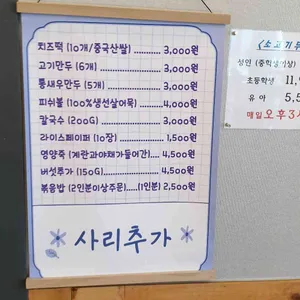 치즈떡 (10개/중국산쌀) ........... 3,000원
고기만두 (6개) ........... 3,000원
통새우만두 (5개) ........... 3,000원
피쉬볼 (100%생선살어묵) ........ 4,000원
칼국수 (200G) ........... 3,000원
라이스페이퍼 (10장) ........... 1,500원
영양죽 (계란과야채가들어간).... 4,500원
버섯추가 (150G) ........... 4,500원
볶음밥 (2인분이상주문).....(1인분) 2,500원
사리추가
<소고기
성인 (중학생이상)
초등학생 11,
유아 5,5
매일 오후3시